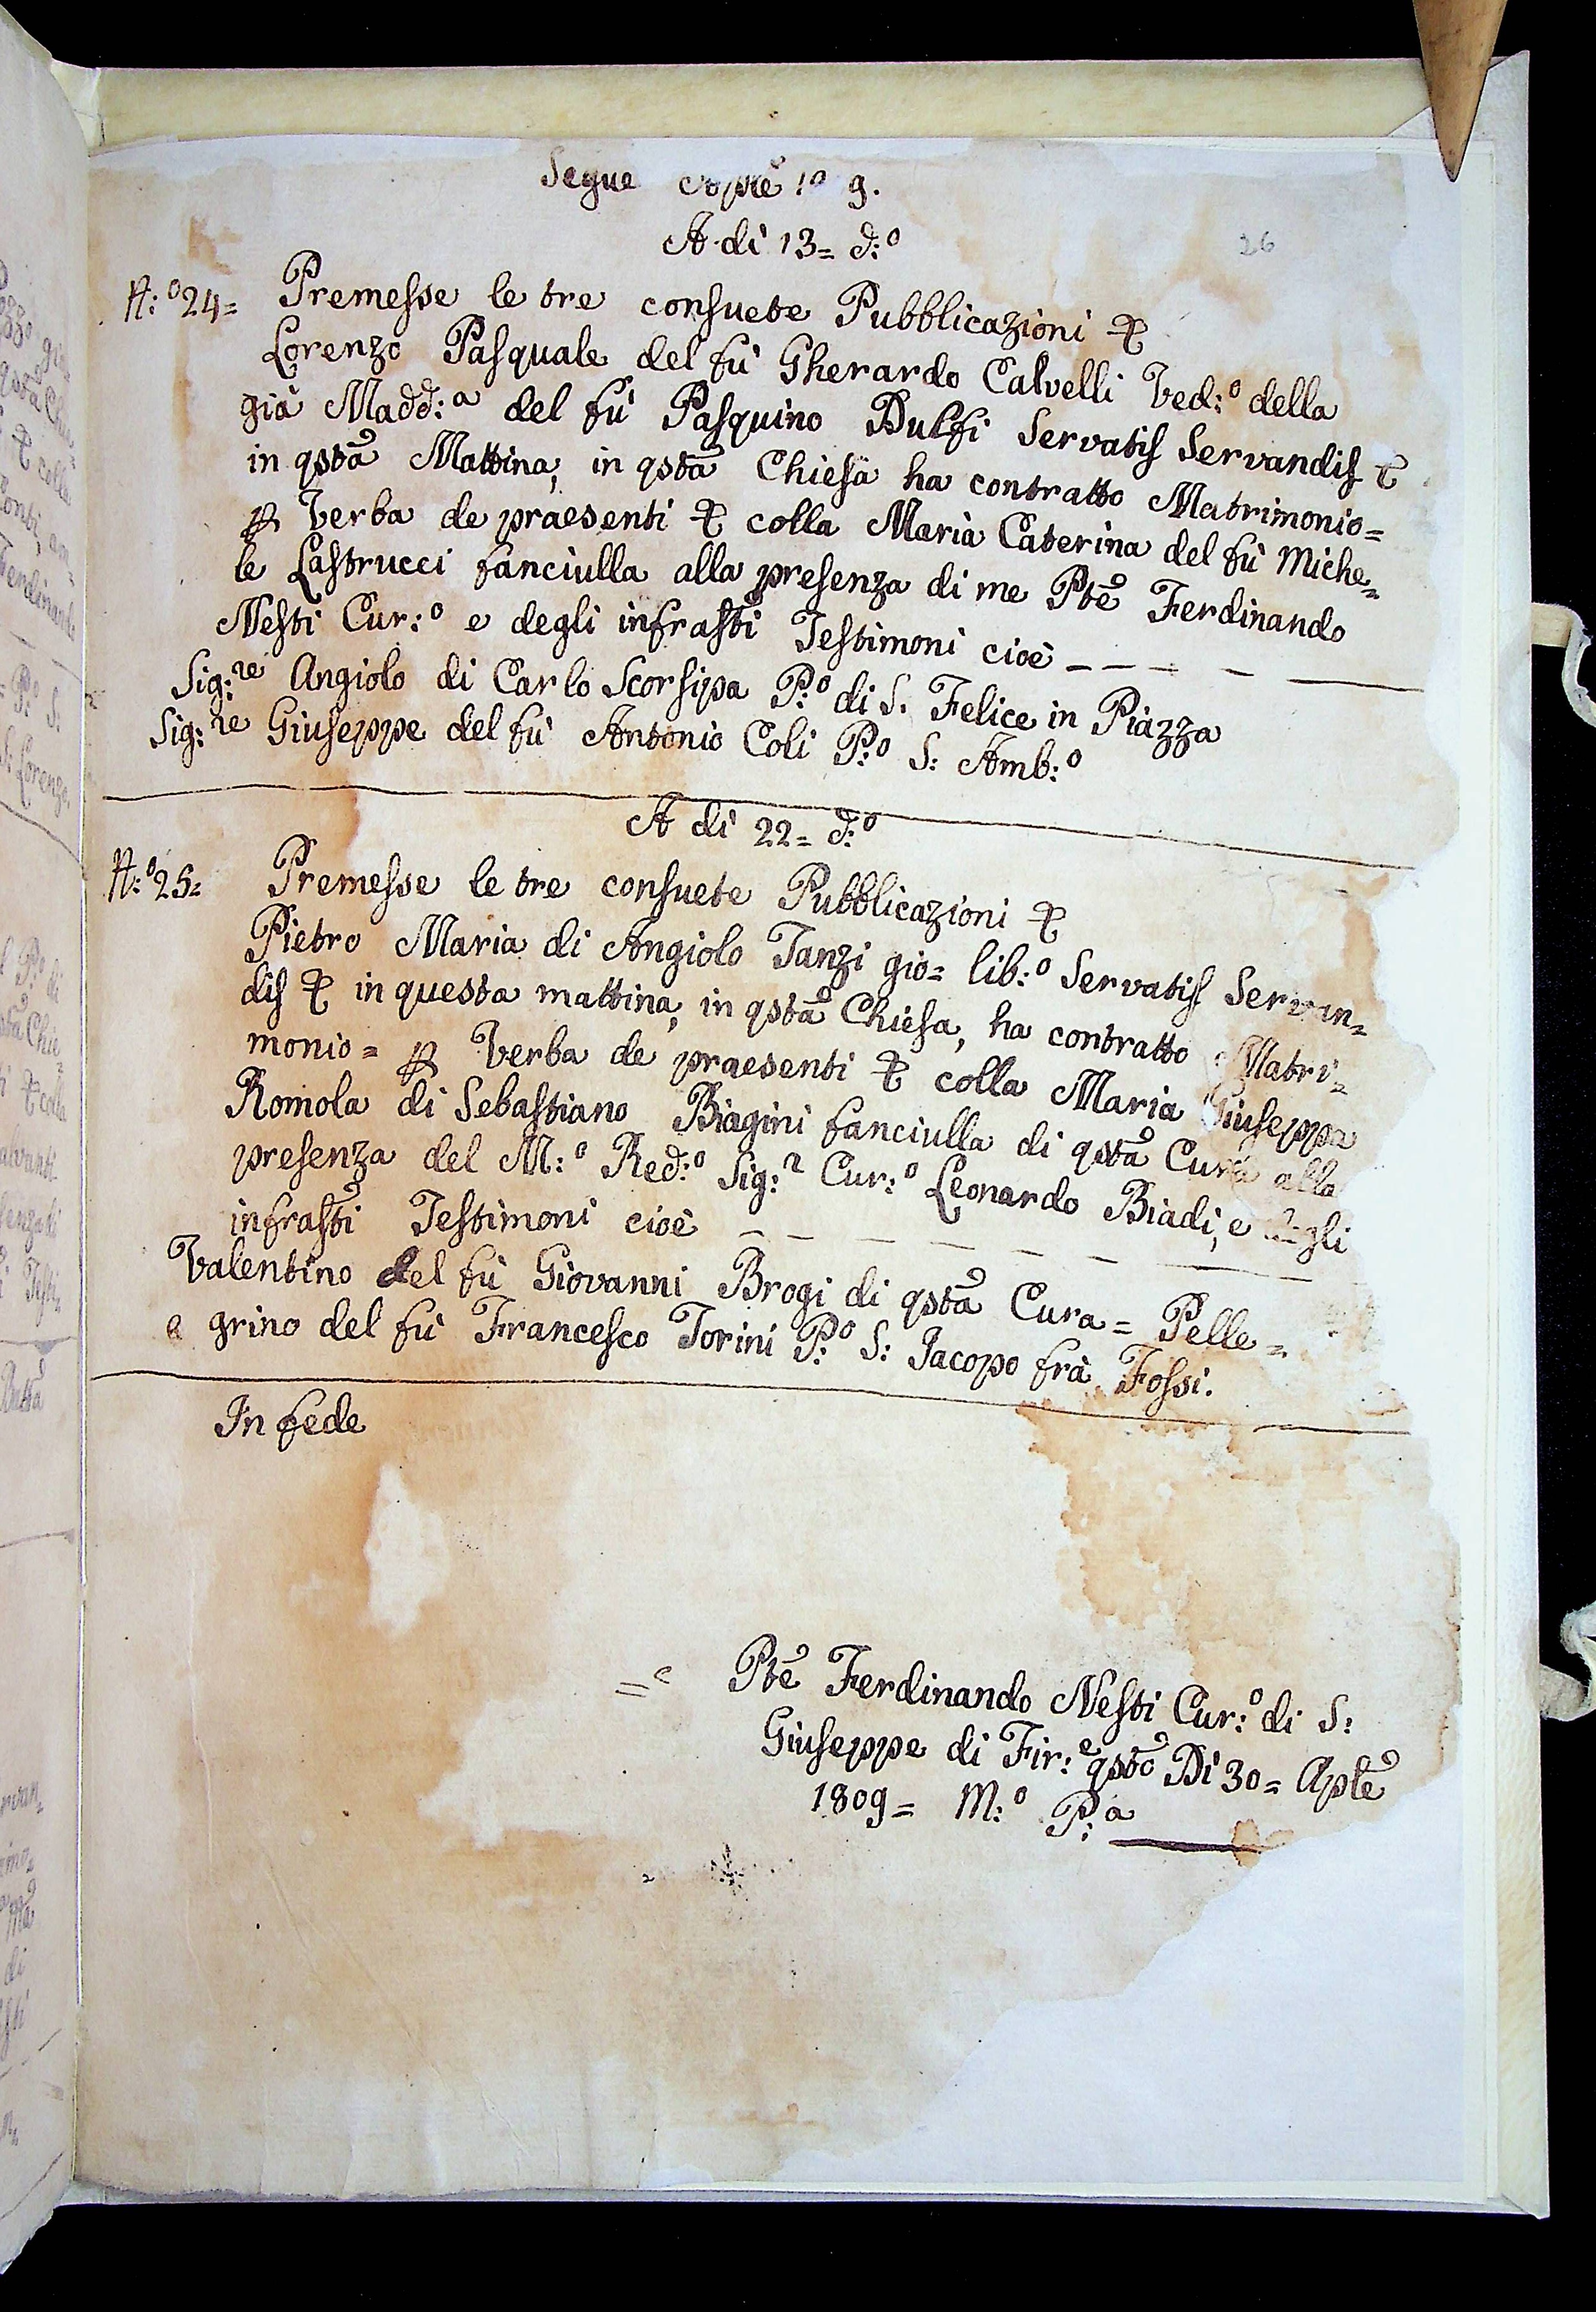 Segue Aple 1 9.
26
A di 13= d:º
N:º 24= Premesse le tre consuete Pubblicazioni &
Lorenzo Pasquale del fù Gherardo Calvelli Ved:º della
già Madd:ª del fù Pasquino Dulfi Servatis Servandis &
in qsta Mattina, in qsta Chiesa ha contratto Matrimonio=
P Verba de praesenti & colla Maria Caterina del fù Miche=
le Lastrucci fanciulla alla presenza di me Pte Ferdinando
Nesti Cur:º e degli infrasti Testimoni cioè _ _ _ _ _
Sig:re Angiolo di Carlo Scorsipa P:º di S. Felice in Piazza
Sig:re Giuseppe del fù Antonio Coli P:º S: Amb:º
A di 22= d:º
N:º 25= Premesse le tre consuete Pubblicazioni &
Pietro Maria di Angiolo Tanzi gio= lib:º Servatis Servan=
dis & in questa mattina, in qsta Chiesa, ha contratto Matri=
monio= P Verba de praesenti & colla Maria Giuseppa
Romola di Sebastiano Biagini fanciulla di qsta Cura alla
presenza del M:º Red:º Sig:r Cur:º Leonardo Biadi, e degli
infrasti Testimoni cioè _ _ _ _ _ _ _
Valentino del fù Giovanni Brogi di qsta Cura= Pelle=
e grino del fù Francesco Torini P:º S: Jacopo frà Fossi.
In fede
Pte Ferdinando Nesti Cur:º di S:
Giuseppe di Fir:e qsto Di 30= Aple
1809= M:º P:ª